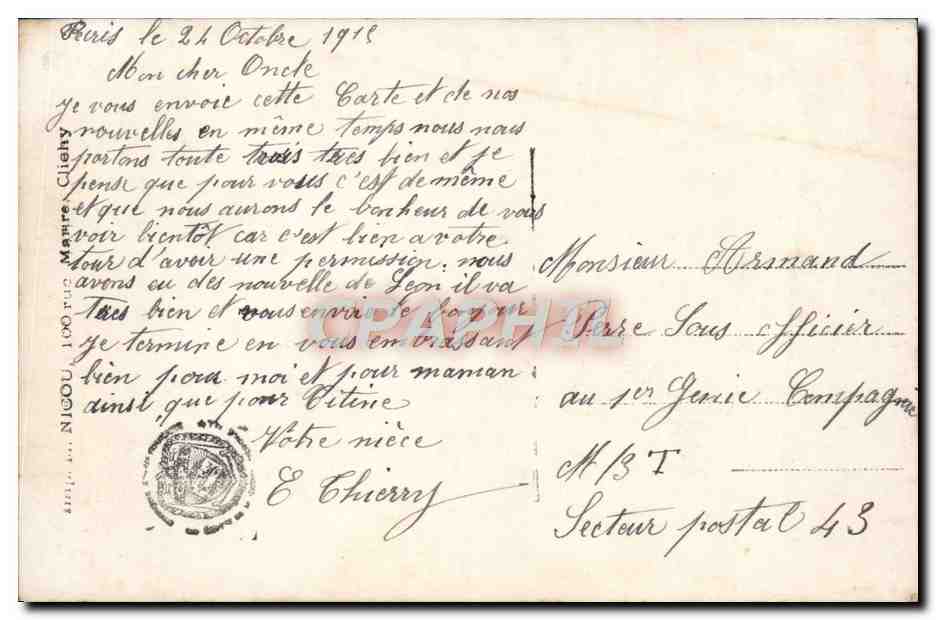 Paris le 24 Octobre 1915
Mon cher Oncle
Je vous envoie cette Carte et de nos
nouvelles en même temps nous nous
portons toute trois tres bien et je
pense que pour vous c'est de même
et que nous aurons le bonheur de vous
voir bientôt car c'est bien a votre
tour d'avoir une permission. nous
avons eu des nouvelle de Léon il va
tres bien et vous envoie le bonjour
Je termine en vous embrassant
bien pour moi et pour maman
ainsi que pour Titine
Votre nièce
E Thierry
Monsieur Armand
Perre Sous officier
au 1er Genie Compagnie
M/3 T
Secteur postal 43
NICOU, 100 rue Martre, Clichy
CPAPHIL